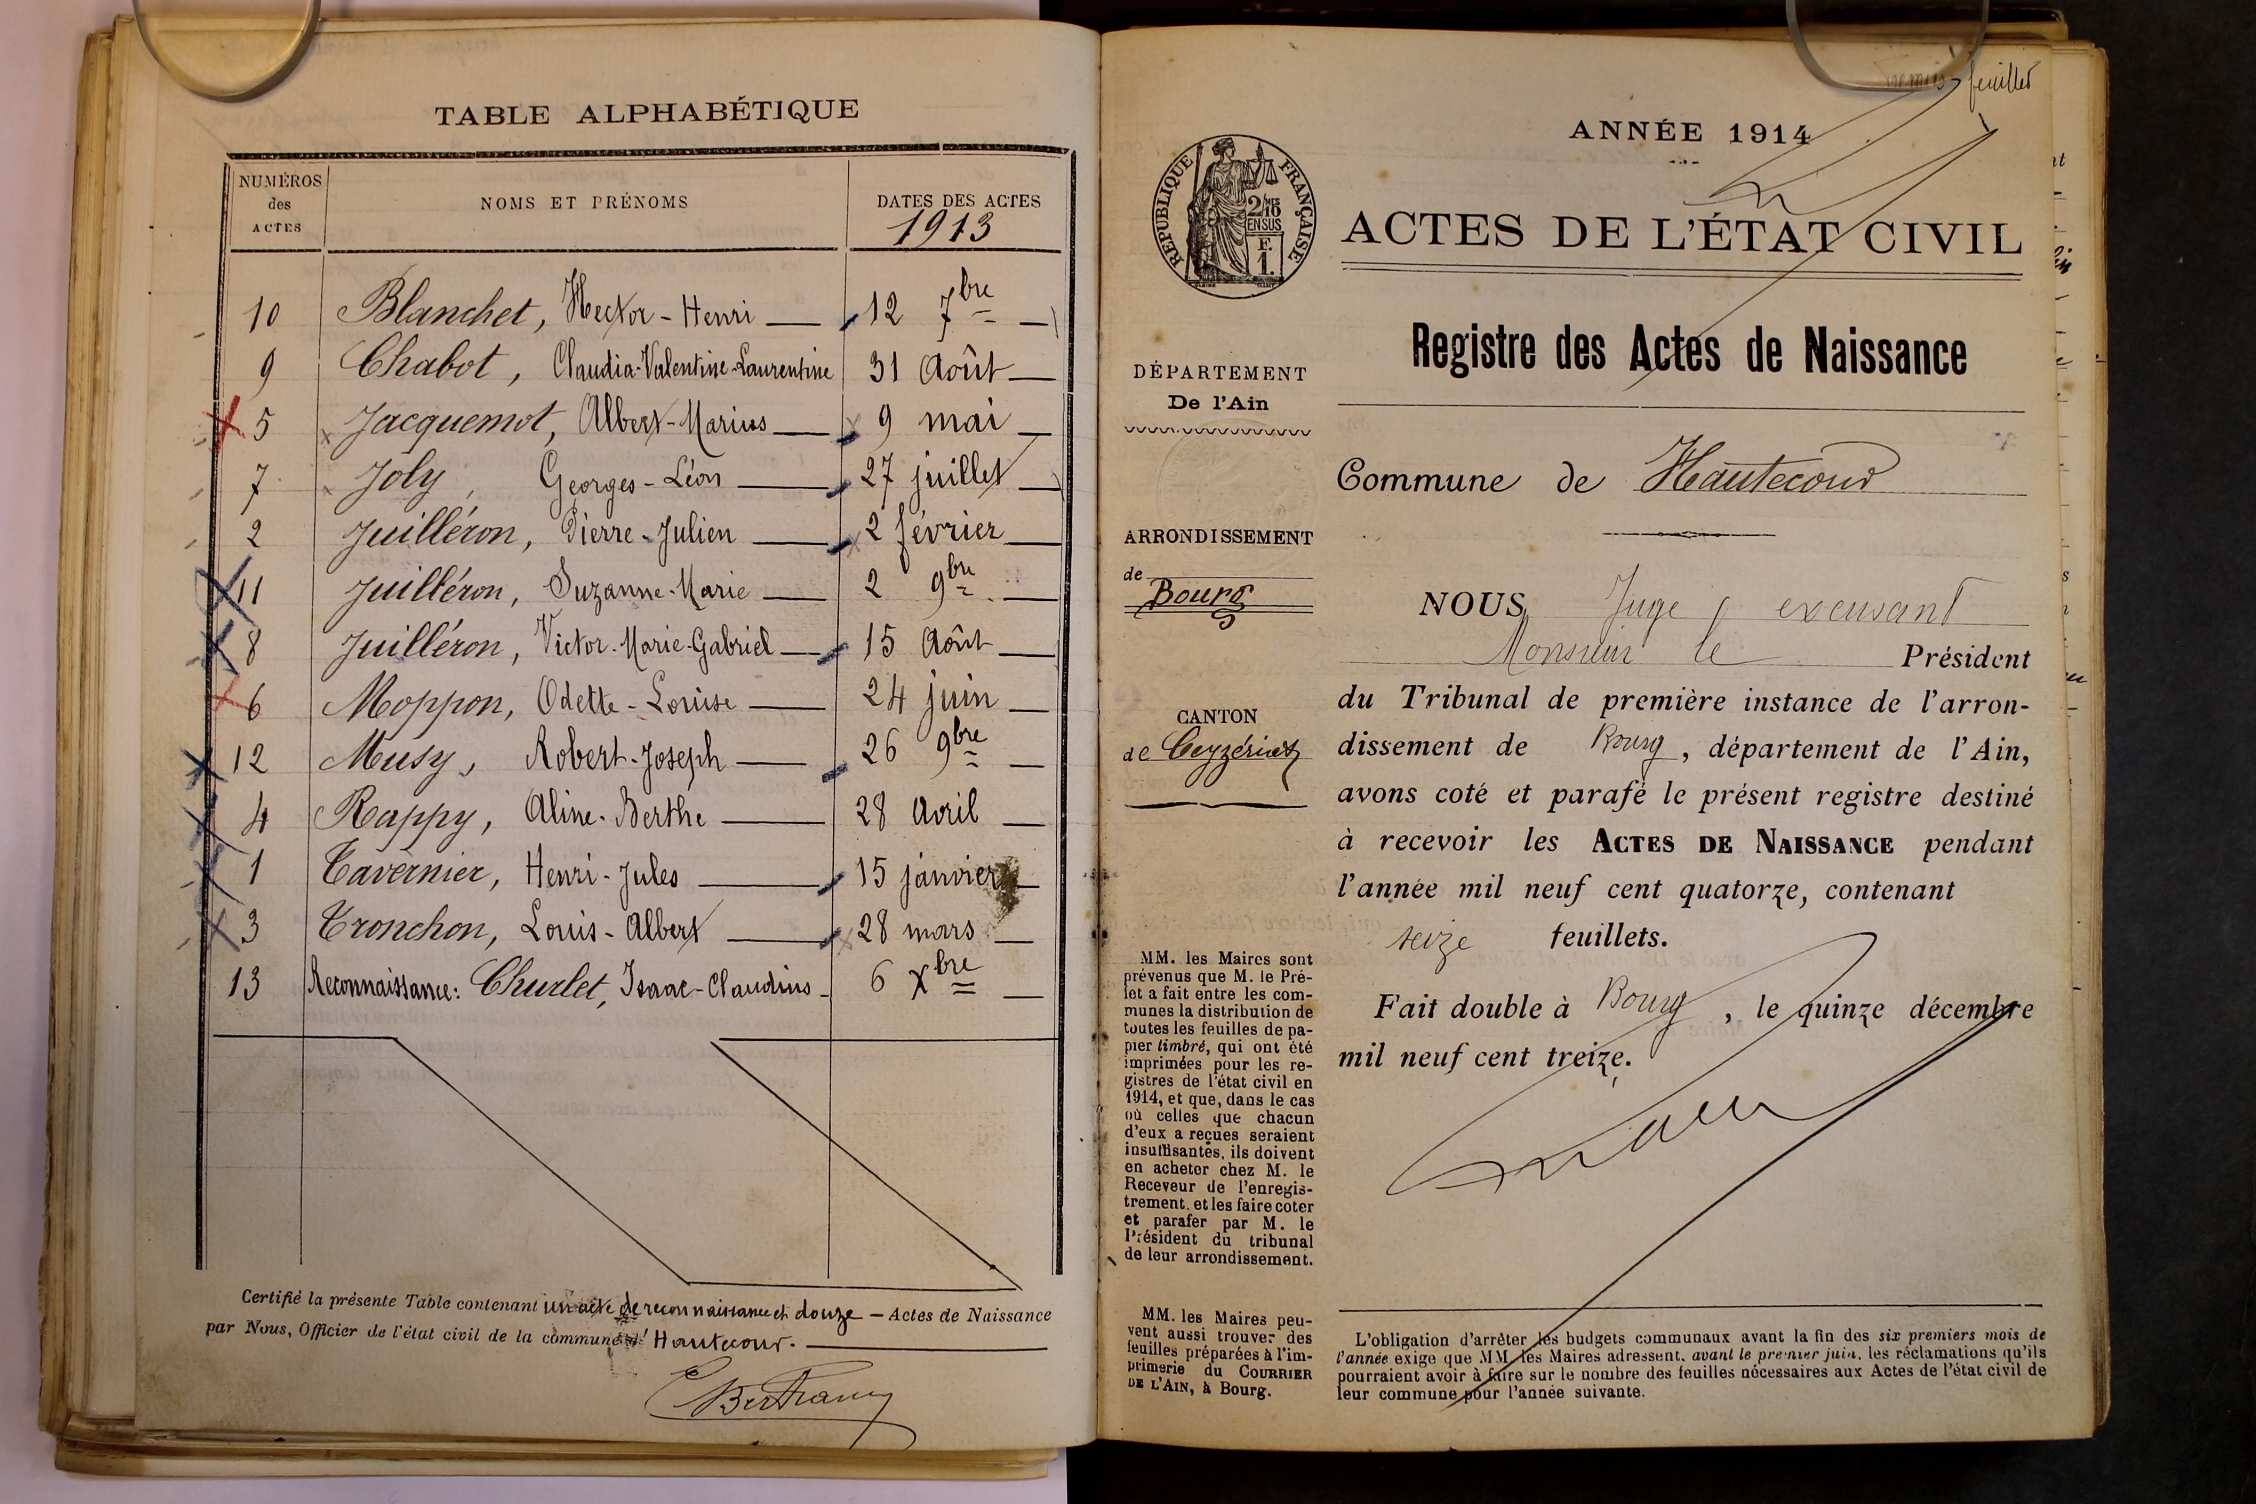 TABLE ALPHABÉTIQUE
NUMÉROS des ACTES NOMS ET PRÉNOMS DATES DES ACTES 1913
10 Blanchet, Hector-Henri 12 7bre
9 Chabot, Claudia-Valentine-Laurentine 31 Août
5 Jacquemot, Albert-Marius 9 mai
7 Joly, Georges-Léon 27 juillet
2 Juilléron, Pierre-Julien 2 février
11 Juilléron, Suzanne-Marie 2 9bre
8 Juilléron, Victor-Marie-Gabriel 15 Août
6 Moppon, Odette-Louise 24 juin
12 Musy, Robert-Joseph 26 9bre
4 Rappy, Aline-Berthe 28 Avril
1 Tavernier, Henri-Jules 15 janvier
3 Tronchon, Louis-Albert 28 mars
13 Reconnaissance: Churlet, Isaac-Claudius 6 Xbre
Certifié la présente Table contenant un acte de reconnaissance et douze — Actes de Naissance
par Nous, Officier de l'état civil de la commune d'Hautecour.
premier feuillet
ANNÉE 1914
RÉPUBLIQUE FRANÇAISE
2/10MES
EN SUS
F.
1.
ACTES DE L'ÉTAT CIVIL
Registre des Actes de Naissance
DÉPARTEMENT
De l'Ain
Commune de Hautecour
ARRONDISSEMENT
de
Bourg
CANTON
de Ceyzériat
NOUS, Juge, excusant
Monsieur le Président
du Tribunal de première instance de l'arron-
dissement de Bourg, département de l'Ain,
avons coté et parafé le présent registre destiné
à recevoir les ACTES DE NAISSANCE pendant
l'année mil neuf cent quatorze, contenant
seize feuillets.
Fait double à Bourg, le quinze décembre
mil neuf cent treize.
MM. les Maires sont
prévenus que M. le Pré-
fet a fait entre les com-
munes la distribution de
toutes les feuilles de pa-
pier timbré, qui ont été
imprimées pour les re-
gistres de l'état civil en
1914, et que, dans le cas
où celles que chacun
d'eux a reçues seraient
insuffisantes, ils doivent
en acheter chez M. le
Receveur de l'enregis-
trement, et les faire coter
et parafer par M. le
Président du tribunal
de leur arrondissement.
MM. les Maires peu-
vent aussi trouver des
feuilles préparées à l'im-
primerie du COURRIER
DE L'AIN, à Bourg.
L'obligation d'arrêter les budgets communaux avant la fin des six premiers mois de
l'année exige que MM. les Maires adressent, avant le premier juin, les réclamations qu'ils
pourraient avoir à faire sur le nombre des feuilles nécessaires aux Actes de l'état civil de
leur commune pour l'année suivante.